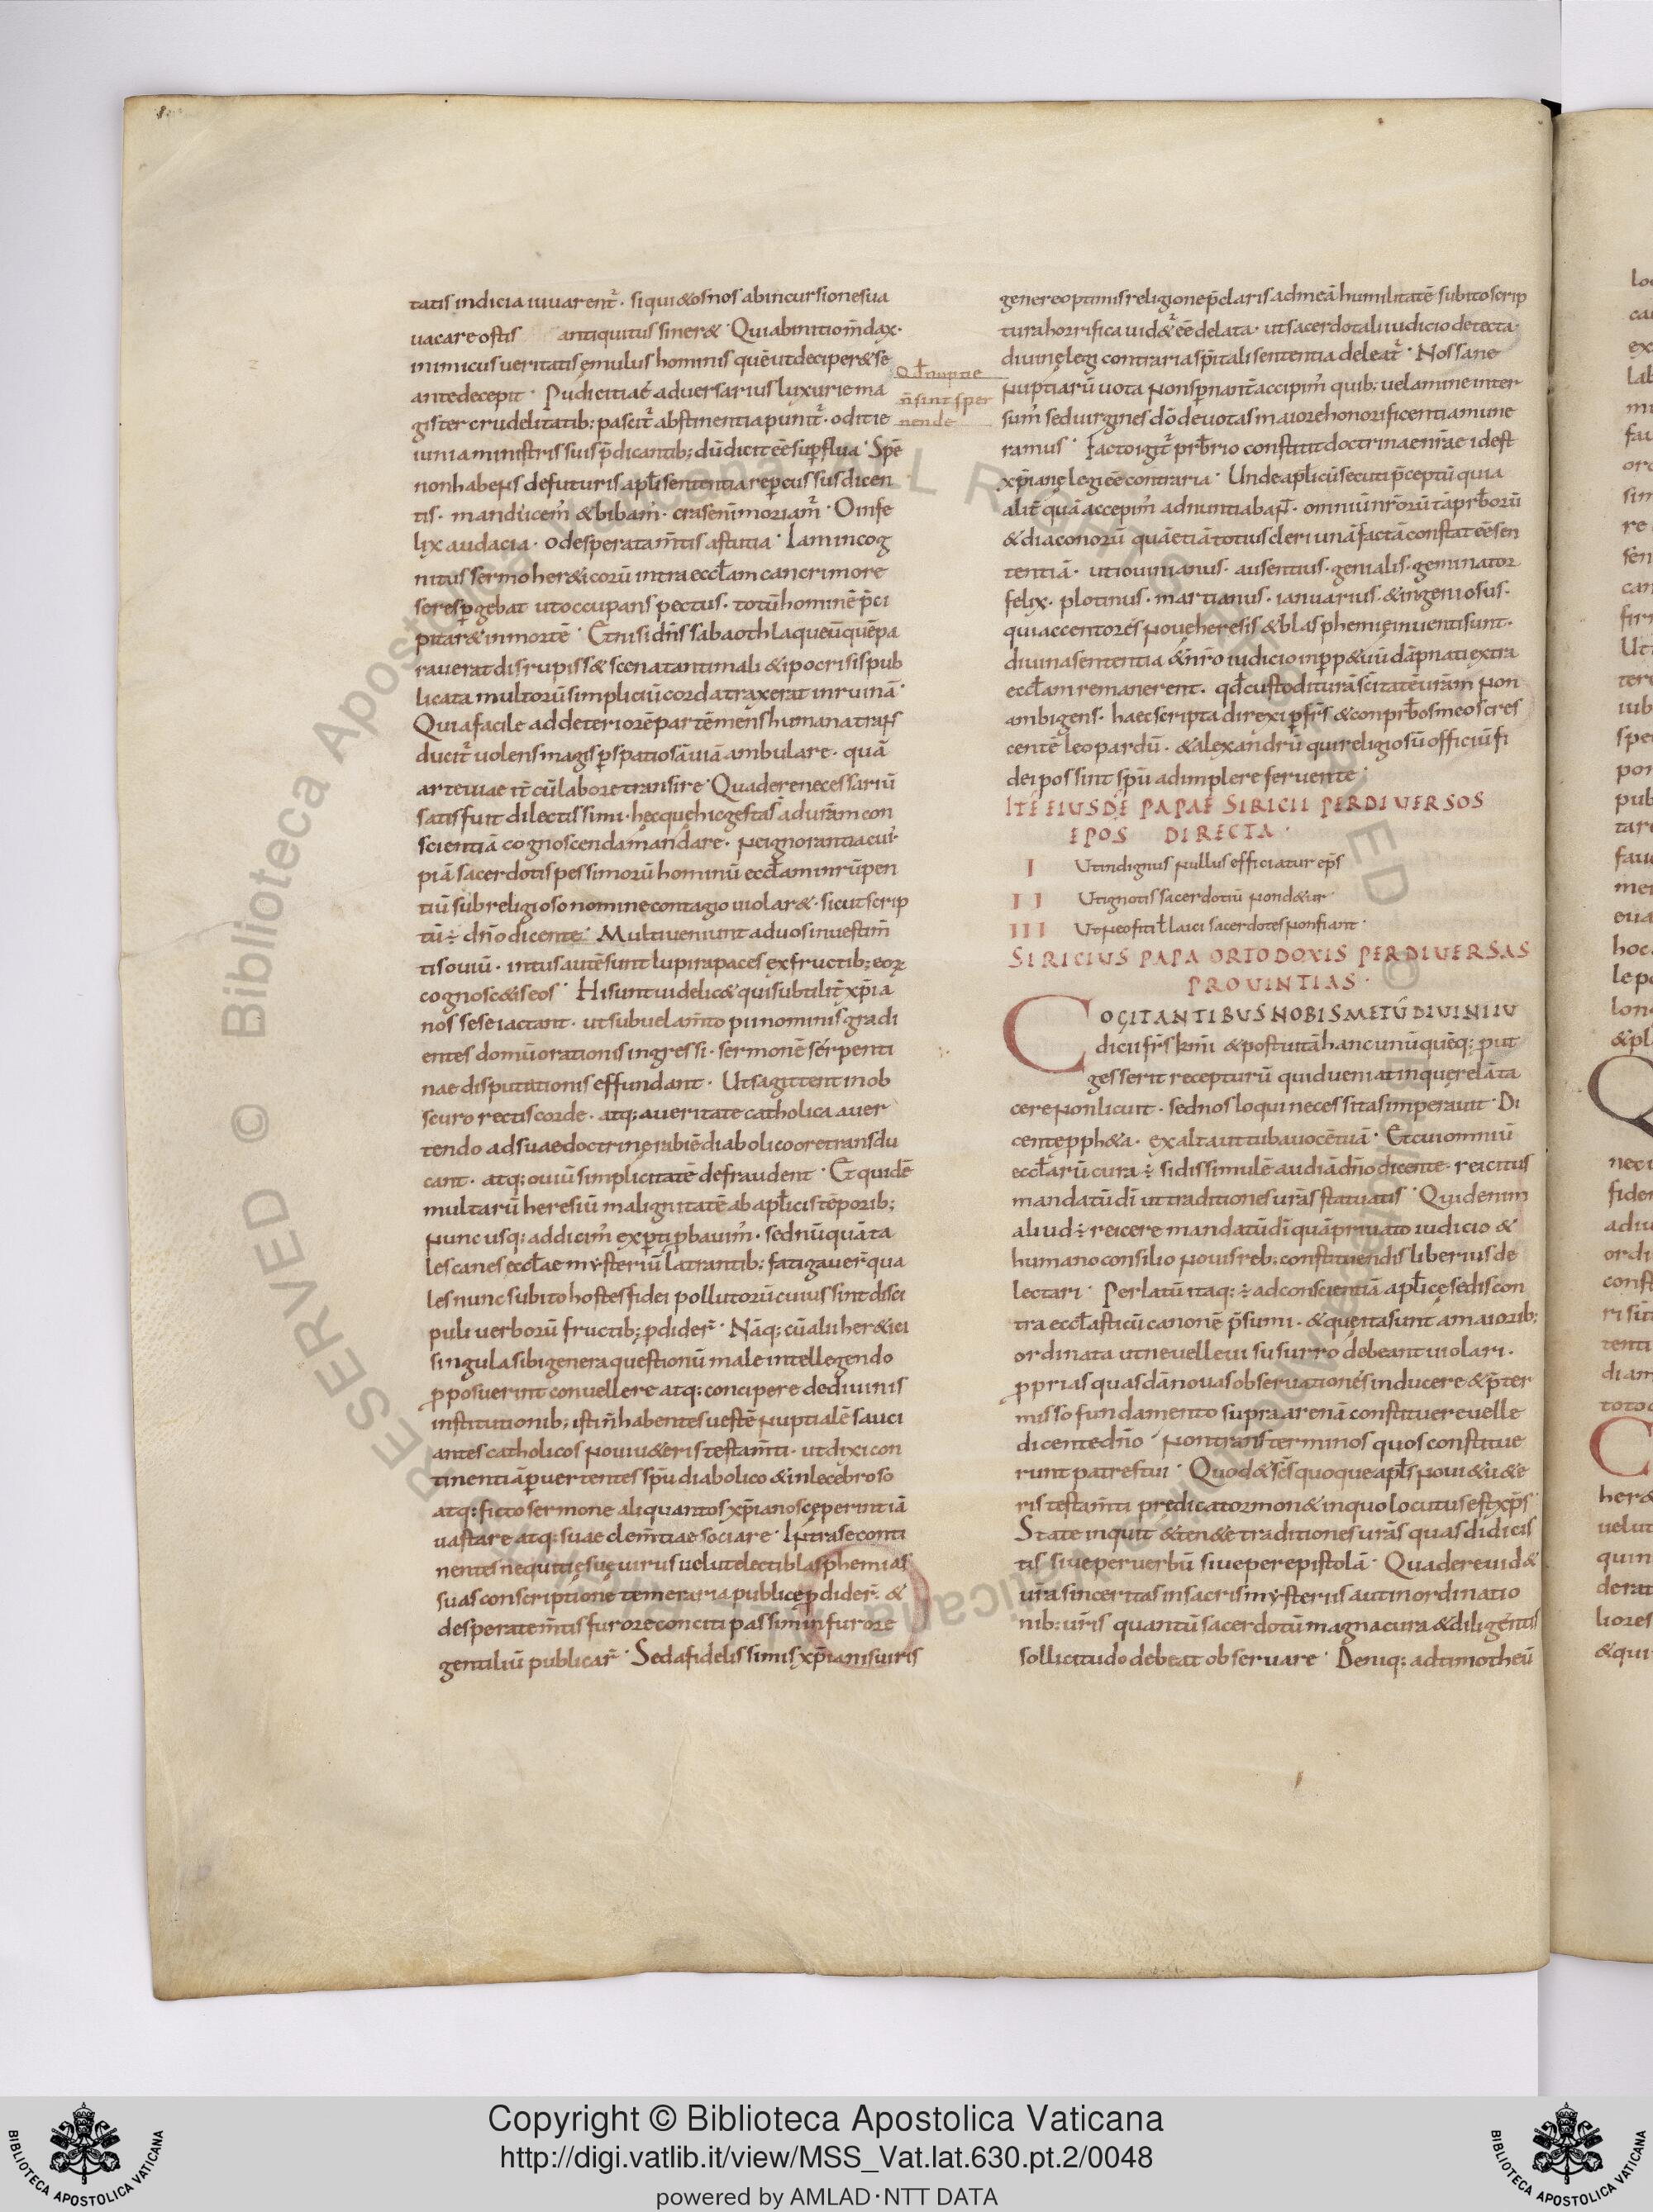 tatis indicia iuuarent᷑. si qui & os nos ab incursione sua
uacare ostis antiquitus siner&. Qui ab initio m̄dax.
inimicus ueritatis ęmulus hominis quē ut deciper& se
ante decepit. Pudicitiae aduersarius luxurie ma
gister crudelitatib; pascit᷑ abstinentia punit᷑. odit ie
iunia ministris suis p̄dicantib; dū dicit eē sup̱flua. Spē
non habens de futuris apl̄i sententia rep̱cussus dicen
tis. manducem᷑ & bibam᷑. cras enī moriam᷑. O infe
lix audacia. o desperatam̄tis astutia. Iam incog
nitus sermo her&icorū intra eccl̄am cancri more
serep̱gebat ut occupans pectus. totū hominē p̄ci
pitar& in mortē. Et nisi dn̄s sabaoth laqueū quē pa
rauerat disrupiss& scena tanti mali & ipocrisis pub
licata multorū simpliciū corda traxerat in ruinā.
Quia facile ad deteriorē partē mens humana trans
ducit᷑ uolens magis p̱ spatiosā uiā ambulare. quā
arte uiae it̄ cū labore transire. Qua de re necessariū
satis fuit dilectissimi. hęc quę hic gesta s̄ ad urām con
scientiā cognoscenda mandare. ne ignorantia cui᷒
piā sacerdotis pessimorū hominū eccl̄am inrūpen
tiū sub religioso nomine contagio uiolar&. sicut scrip
tū ÷ dn̄o dicente. Multi ueniunt ad uos in uestim̄
tis ouiū. intus autē sunt lupi rapaces ex fructib; eoꝝ
cognosc&is eos. Hi sunt uidelic& qui subtilit̄ xp̄ia
nos sese iactant. ut sub uelam̄to pii nominis gradi
entes domū orationis ingressi. sermonē serpenti
nae disputationis effundant. Ut sagittent in ob
scuro rectis corde. atq; a ueritate catholica auer
tendo ad suae doctrinę rabiē diabolico ore transdu
cant. atq; ouiū simplicitatē defraudent. Et quidē
multarū heresiū malignitatē ab apl̄icis tēporib;
nunc usq; addicim᷑ exp̱ti ꝓbauim᷑. sed nūquā ta
les canes eccl̄ae mysteriū latrantib; fatigauer̄ qua
les nunc subito hostes fidei pollutorū cuius sint disci
puli uerborū fructib; ꝓdider̄. Nāq; cū alii her&ici
singula sibi genera questionū male intellegendo
ꝓposuerint conuellere atq; concipere de diuinis
institutionib; isti n̄ habentes uestē nuptialē sauci
antes catholicos noui u&eris testam̄ti. ut dixi con
tinentiā p̱uertentes sp̄u diabolico & inlecebroso
atq; ficto sermone aliquantos xp̄ianos ceperint iā
uastare atq; suae clem̄tiae sociare. Intra se conti
nentes nequitię suę uirus uelut electi blasphemias
suas conscriptione temeraria publice ꝓdider̄. &
desperatem̄tis furore conciti passim in furore
gentiliū publicar̄. Sed a fidelissimis xp̄ianis uiris
Qd̄ nuptie
n̄ sint sper
nende
genere optimis religione p̄claris ad meā humilitatē subito scrip
tura horrifica uid&᷑ eē delata. ut sacerdotali iudicio detecta
diuinę legi contraria sp̄itali sententia deleat᷑. Nos sane
nuptiarū uota non sp̱nant̄ accipim᷑ quib; uelamine inter
sum᷑ sed uirgines dō deuotas maiore honorificentia mune
ramus. Facto igit᷑ prb̄rio constitit doctrinae nr̄ae id est
xp̄ianę legi eē contraria. Unde apl̄icū secuti p̄ceptū quia
alit̄ quā accepim᷑ adnuntiabant̄. omniū nr̄orū tā prb̄orū
& diaconorū quā etiā totius cleri unā factā constat eē sen
tentiā. ut iouinianus. ausentius. genialis. geminator
felix. plotinus. martianus. ianuarius. & ingeniosus.
qui accentores nouę heresis & blasphemię inuenti sunt.
diuina sententia & nr̄o iudicio in ꝑp&uū dāpnati extra
eccl̄am remanerent. qd̄ custoditurā sc̄itatē urām non
ambigens. haec scripta direxi p̱ fr̄s & conprb̄os meos cres
centē leopardū. & alexandrū qui religiosū officiū fi
dei possint sp̄u adimplere feruente.
ITĒ EIUSDĒ PAPAE SIRICII PER DIUERSOS
EPOS DIRECTA.
I Ut indignus nullus efficiatur ep̄s
II Ut ignotis sacerdotiū non d&ur
III Ut neofiti t̄ laici sacerdotes non fiant.
SIRICIUS PAPA ORTODOXIS PER DIUERSAS
PROUINTIAS.
COGITANTIBUS NOBIS METŪ DIUINI IU
dicii fr̄s km̄i & post uitā hanc unūquēq; ꝓut
gesserit recepturū quid ueniat in querelā ta
cere non licuit. sed nos loqui necessitas imperauit. Di
cente ꝓph&a. exalta ut tuba uocē tuā. Et cui omniū
eccl̄arū cura ÷ si dissimulē audiā dn̄o dicente. reicitis
mandatū dī ut traditiones urās statuatis. Quid enim
aliud ÷ reicere mandatū dī quā priuato iudicio &
humano consilio nouis reb; constituendis liberius de
lectari. Perlatū itaq; ÷ ad conscientiā apl̄ice sedis con
tra eccl̄asticū canonē p̄sumi. & que ita sunt a maiorib;
ordinata ut ne uel leui susurro debeant uiolari.
ꝓprias quasdā nouas obseruationes inducere & p̄ter
misso fundamento supra arenā constituere uelle
dicente dn̄o. Non trans terminos quos constitue
runt patres tui. Quod & sc̄s quoque apl̄s noui & u&e
ris testam̄ti predicator mon& in quo locutus est xp̄s
State inquit & ten&e traditiones urās quas didicis
tis siue per uerbū siue per epistolā. Qua de re uid&
ura sinceritas in sacris mysteriis aut in ordinatio
nib; ur̄is quantū sacerdotū magna cura & diligentis
sollicitudo debeat obseruare. Deniq; ad timotheū
Copyright © Biblioteca Apostolica Vaticana
http://digi.vatlib.it/view/MSS_Vat.lat.630.pt.2/0048
powered by AMLAD·NTT DATA
BIBLIOTECA APOSTOLICA VATICANA
BIBLIOTECA APOSTOLICA VATICANA